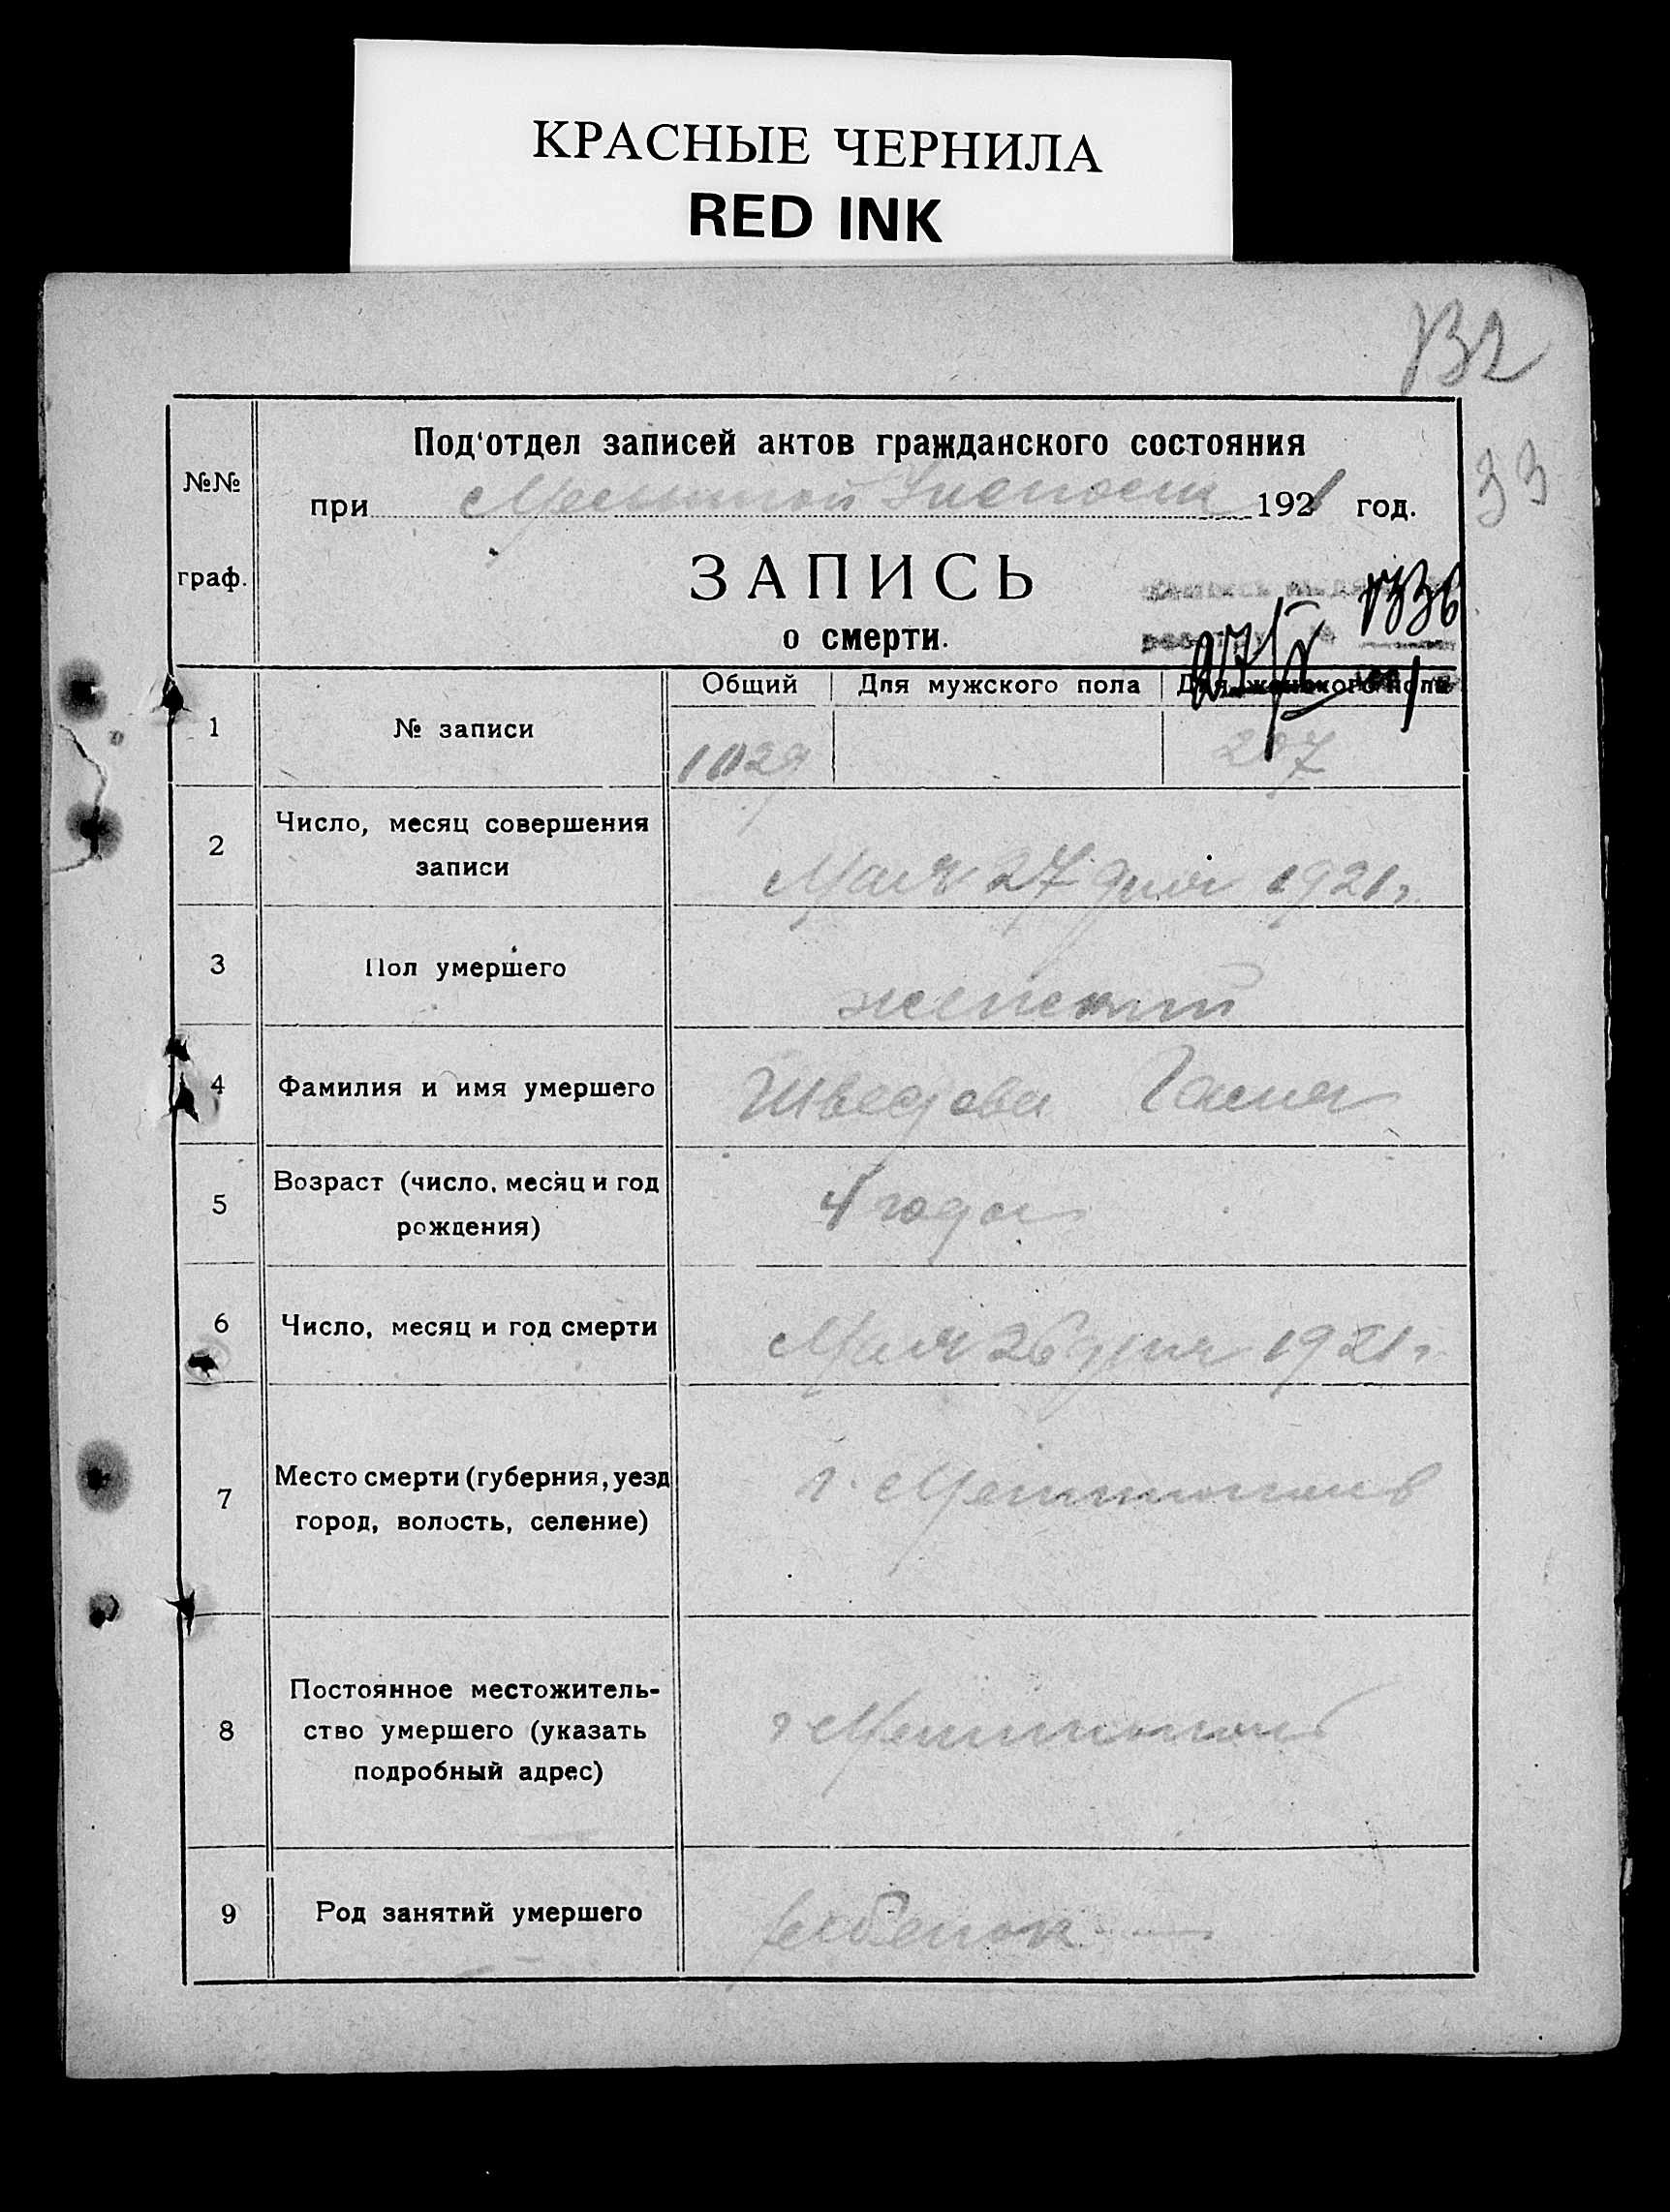 КРАСНЫЕ ЧЕРНИЛА
RED INK
132
33
Под'отдел записей актов гражданского состояния
№№
при 1921 год.
граф.
ЗАПИСЬ
1336
о смерти.
Общий Для мужского пола Для женского пола
1 № записи
1029 207
2 Число, месяц совершения
записи
Мая 27 дня 1921 г.
3 Пол умершего
женский
4 Фамилия и имя умершего Шведова
5 Возраст (число, месяц и год
рождения)
4 года
6 Число, месяц и год смерти Мая 26 дня 1921 г
7 Место смерти (губерния, уезд
город, волость, селение)
г.
8 Постоянное местожитель-
ство умершего (указать
подробный адрес)
г
9 Род занятий умершего ребенок